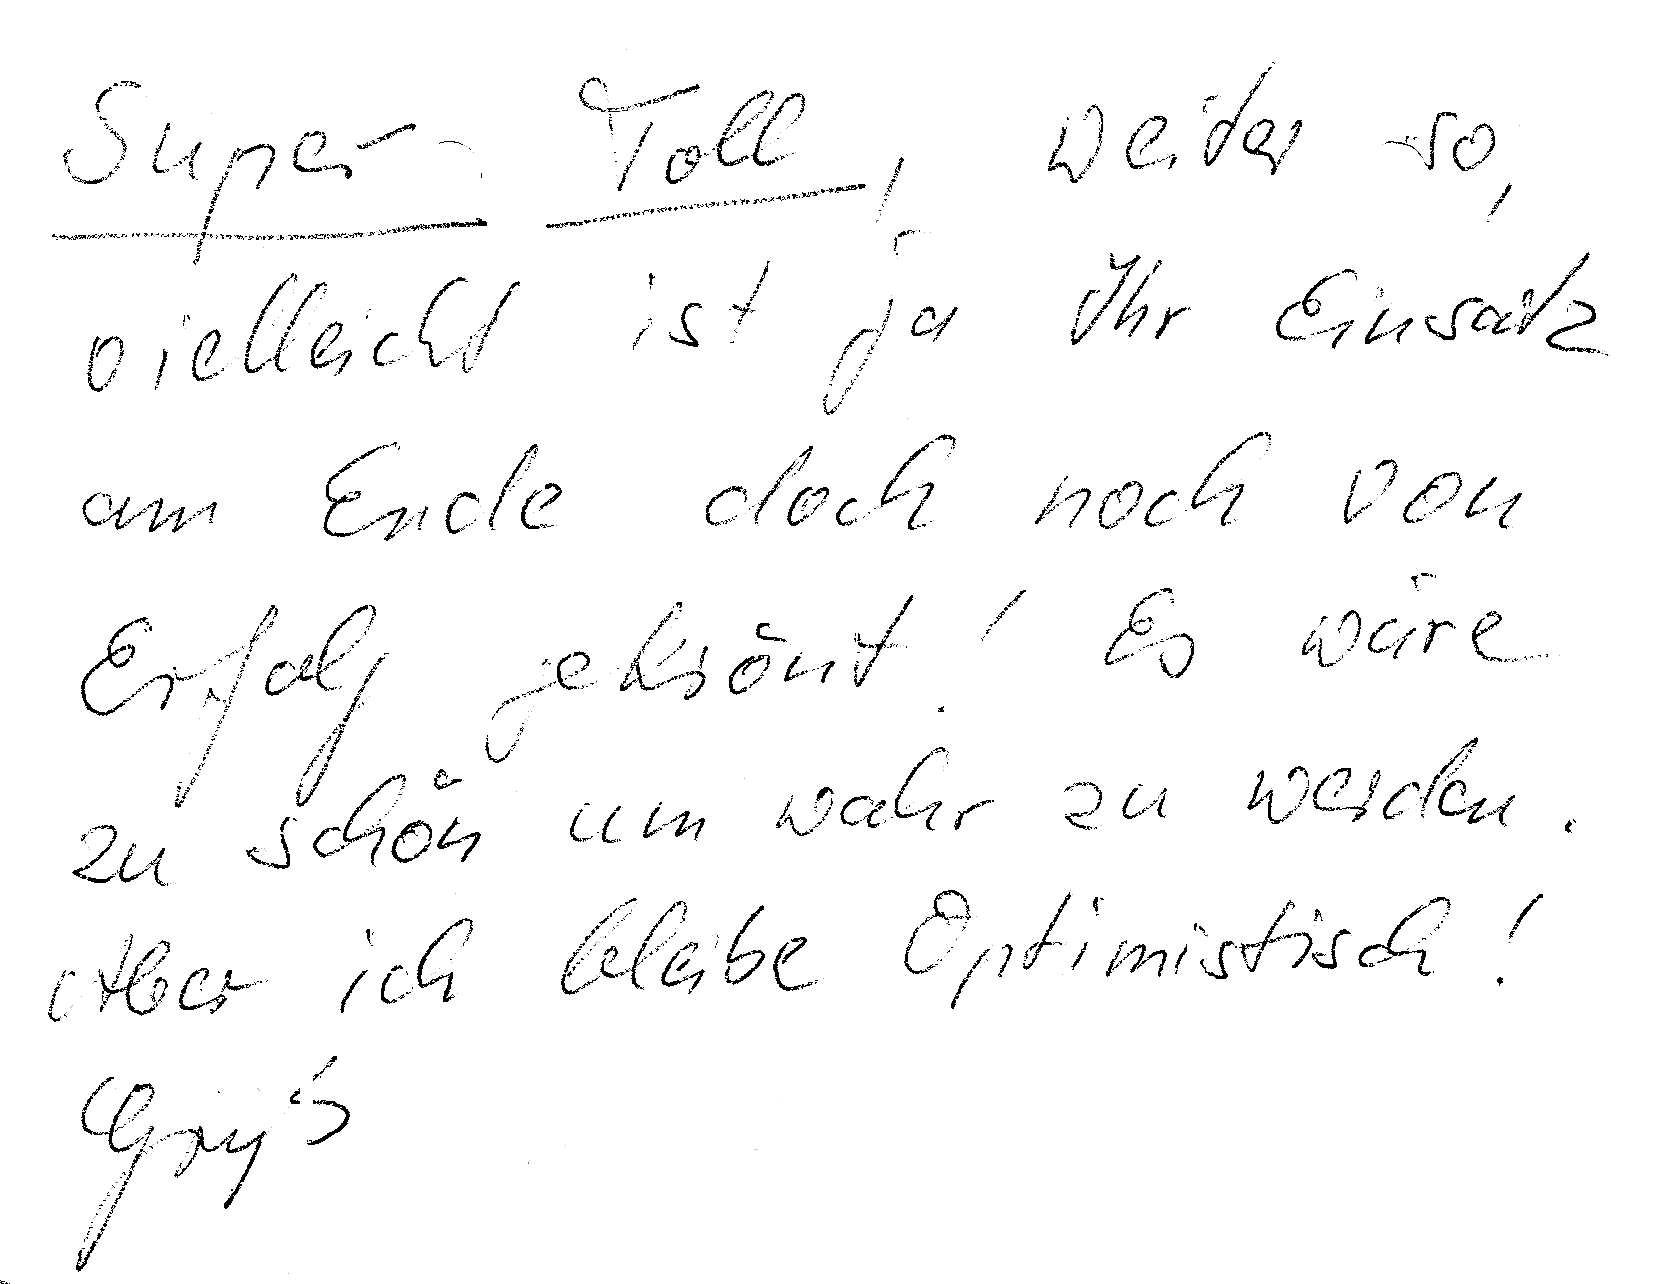 Super - Toll, weiter so,
vielleicht ist ja Ihr Einsatz
am Ende doch noch von
Erfolg gekrönt! Es wäre
zu schön um wahr zu werden.
Aber ich bleibe Optimistisch!
Gruß